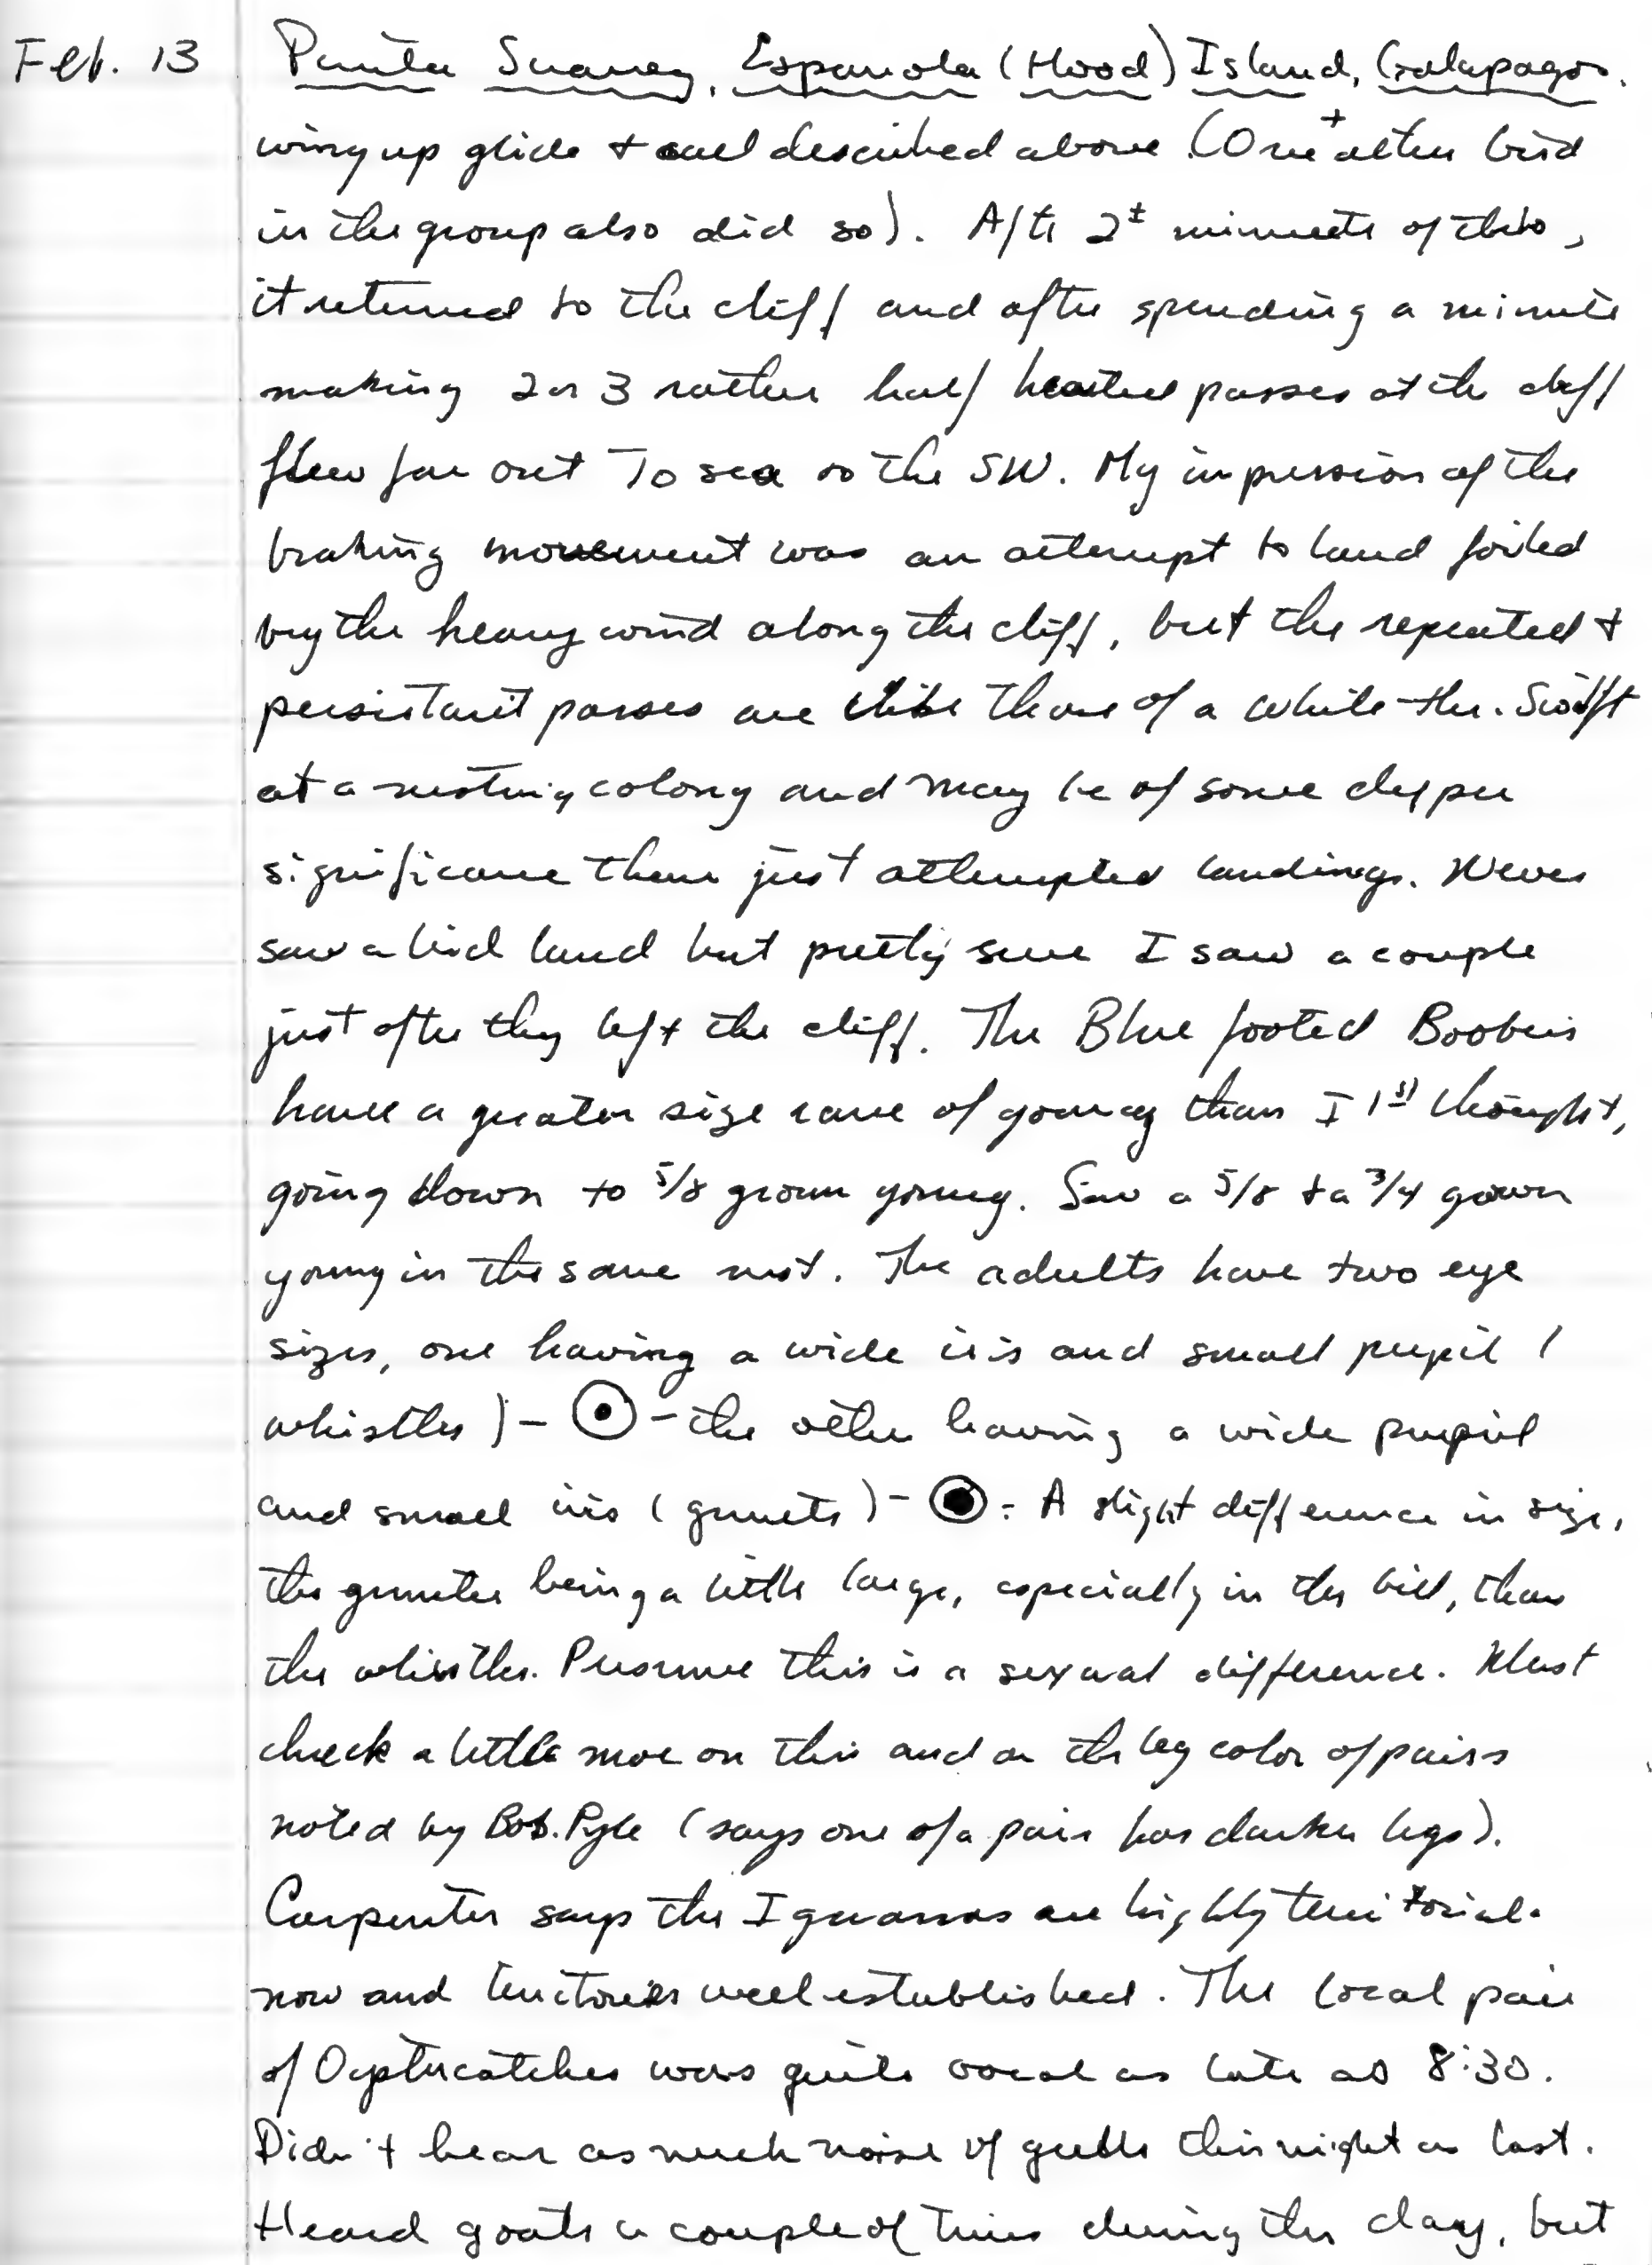 Feb. 13 Punta Suarez, Espanola (Hood) Island, Galapagos.
wing up glide + call described above. (One + other bird
in the group also did so). After 2± minutes of this,
it returned to the cliff and after spending a minute
making 2 or 3 rather half hearted passes at the cliff
flew far out To sea to the SW. My impression of the
braking movement was an attempt to land foiled
by the heavy wind along the cliff, but the repeated +
persistant passes are like those of a White-thr. Swift
at a nesting colony and may be of some deeper
significance than just attempted landings. Never
saw a bird land but pretty sure I saw a couple
just after they left the cliff. The Blue footed Boobies
have a greater size range of young than I 1st thought,
going down to 5/8 grown young. Saw a 5/8 + a 3/4 grown
young in the same nest. The adults have two eye
sizes, one having a wide iris and small pupil (
whistles) - - the other having a wide pupil
and small iris (grunts) - - A slight difference in size,
the grunter being a little large, especially in the bill, than
the whistler. Presume this is a sexual difference. Must
check a little more on this and on the leg color of pairs
noted by Bob. Pyle (says one of a pair has darker legs).
Carpenter says the Iguanas are highly territorial.
now and territories well established. The local pair
of Oystercatches was quite vocal as late as 8:30.
Didn't hear as much noise of gulls this night as last.
Heard goats a couple of times during the day, but